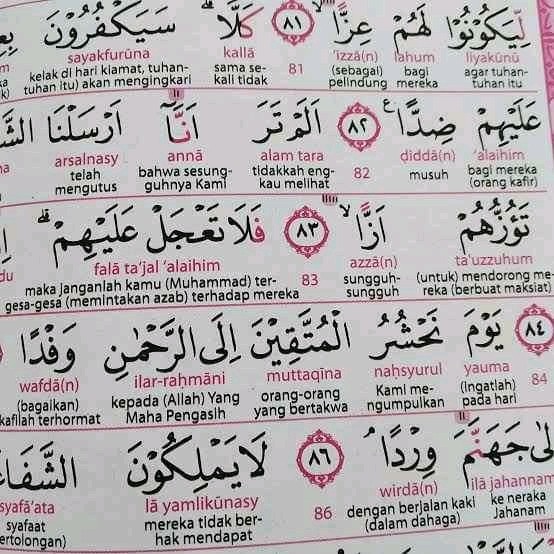 لِّيَكُوْنُوْا لَهُمْ عِزًّا ۙ ٨١ كَلَّا ۗ سَيَكْفُرُوْنَ
sayakfurūna kallā 'izzā(n) lahum liyakūnū
kelak di hari kiamat, tuhan-tuhan itu) akan mengingkari sama sekali tidak 81 (sebagai) pelindung bagi mereka agar tuhan-tuhan itu
عَلَيْهِمْ ضِدًّا ࣖ ٨٢ اَلَمْ تَرَ اَنَّآ اَرْسَلْنَا
arsalnasy annā alam tara ḍiddā(n) 'alaihim
telah mengutus bahwa sesungguhnya Kami tidakkah engkau melihat 82 musuh bagi mereka (orang kafir)
تَؤُزُّهُمْ اَزًّا ۙ ٨٣ فَلَا تَعْجَلْ عَلَيْهِمْ ۗ
falā ta'jal 'alaihim azzā(n) ta'uzzuhum
maka janganlah kamu (Muhammad) tergesa-gesa (memintakan azab) terhadap mereka 83 sungguh-sungguh (untuk) mendorong mereka (berbuat maksiat)
٨٤ يَوْمَ نَحْشُرُ الْمُتَّقِيْنَ اِلَى الرَّحْمٰنِ وَفْدًا
wafdā(n) ilar-raḥmāni muttaqīna naḥsyurul yauma
(bagaikan) kafilah terhormat kepada (Allah) Yang Maha Pengasih orang-orang yang bertakwa Kami mengumpulkan (Ingatlah) pada hari 84
اِلٰى جَهَنَّمَ وِرْدًا ۘ ٨٦ لَا يَمْلِكُوْنَ الشَّفَا
syafā'ata lā yamlikūnasy wirdā(n) ilā jahannam
syafaat (pertolongan) mereka tidak berhak mendapat 86 dengan berjalan kaki (dalam dahaga) ke neraka Jahanam